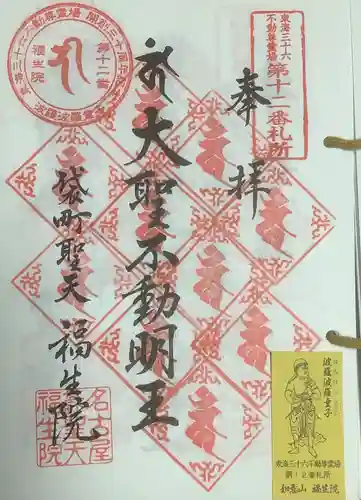 奉拝
大聖不動明王
袋町聖天
福生院
東海三十六
不動尊霊場
第十二番札所
福生院
第十二番
波羅波羅童子
東海三十六不動尊霊場
第12番札所
如意山 福生院